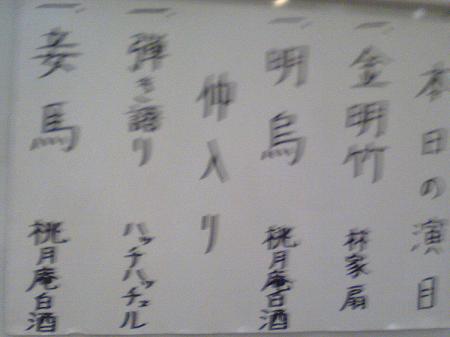 本日の演目
一、金明竹 林家扇
一、明烏 桃月庵白酒
仲入り
一、弾き語り ハッチハッチェル
一、妾馬 桃月庵白酒